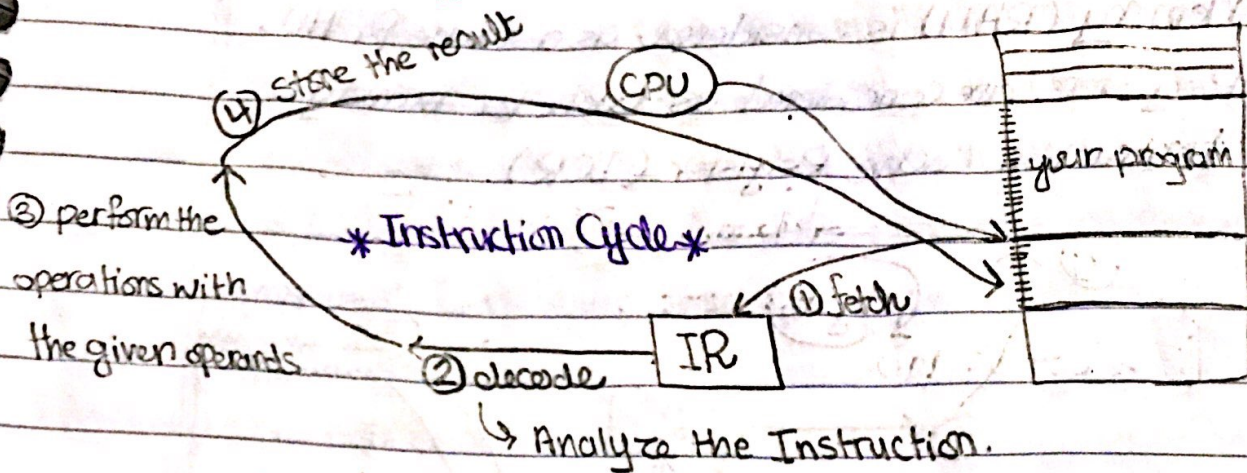 ④ Store the result
CPU
your program
③ perform the
operations with
the given operands
* Instruction Cycle *
① fetch
IR
② decode
↳ Analyze the Instruction.